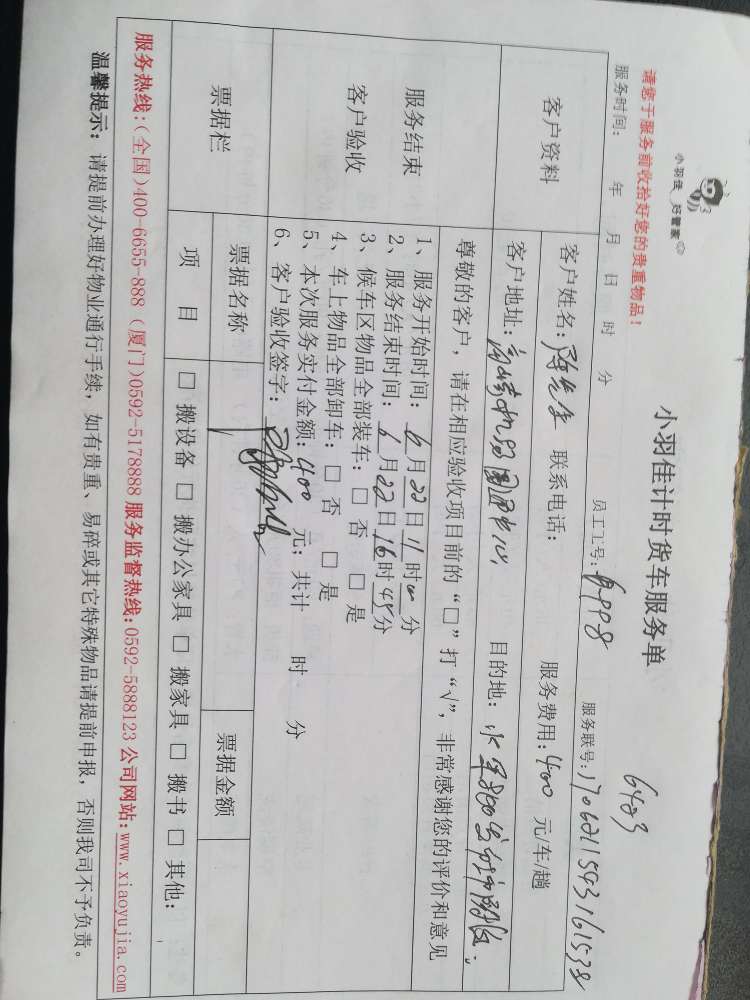 小羽佳 好管家
请您于服务前收拾好您的贵重物品！
小羽佳计时货车服务单
6483
服务时间： 年 月 日 时 分 员工工号： 服务联号：1706211543161538
客户资料
客户姓名：陈先生 联系电话： 服务费用：400 元/车/趟
客户地址：高崎机场 目的地：
尊敬的客户，请在相应验收项目前的“□”打“√”，非常感谢您的评价和意见
服务结束
客户验收
1、服务开始时间：6月22日11时 分
2、服务结束时间：6月22日16时45分
3、候车区物品全部装车：□ 否 □ 是
4、车上物品全部卸车：□ 否 □ 是
5、本次服务实付金额：400 元；共计 时 分
6、客户验收签字：
票据栏
票据名称 票据金额
项 目 □ 搬设备 □ 搬办公家具 □ 搬家具 □ 搬书 □ 其他：
服务热线：（全国）400-6655-888（厦门）0592-5178888 服务监督热线：0592-5888123 公司网站：www.xiaoyujia.com
温馨提示：请提前办理好物业通行手续，如有贵重、易碎或其它特殊物品请提前申报，否则我司不予负责。